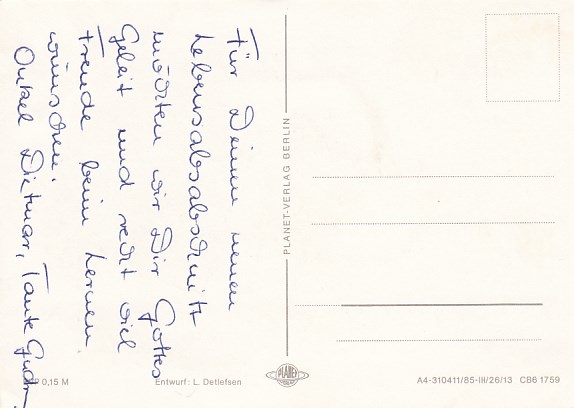 Für Deinen neuen
Lebensabsabschnitt
möchten wir Dir Gottes
Geleit und recht viel
Freude beim Lernen
wünschen.
Onkel Dietmar, Tante
PLANET-VERLAG BERLIN
0,15 M
Entwurf: L. Detlefsen
PLANET
A4-310411/85-III/26/13 CB6 1759